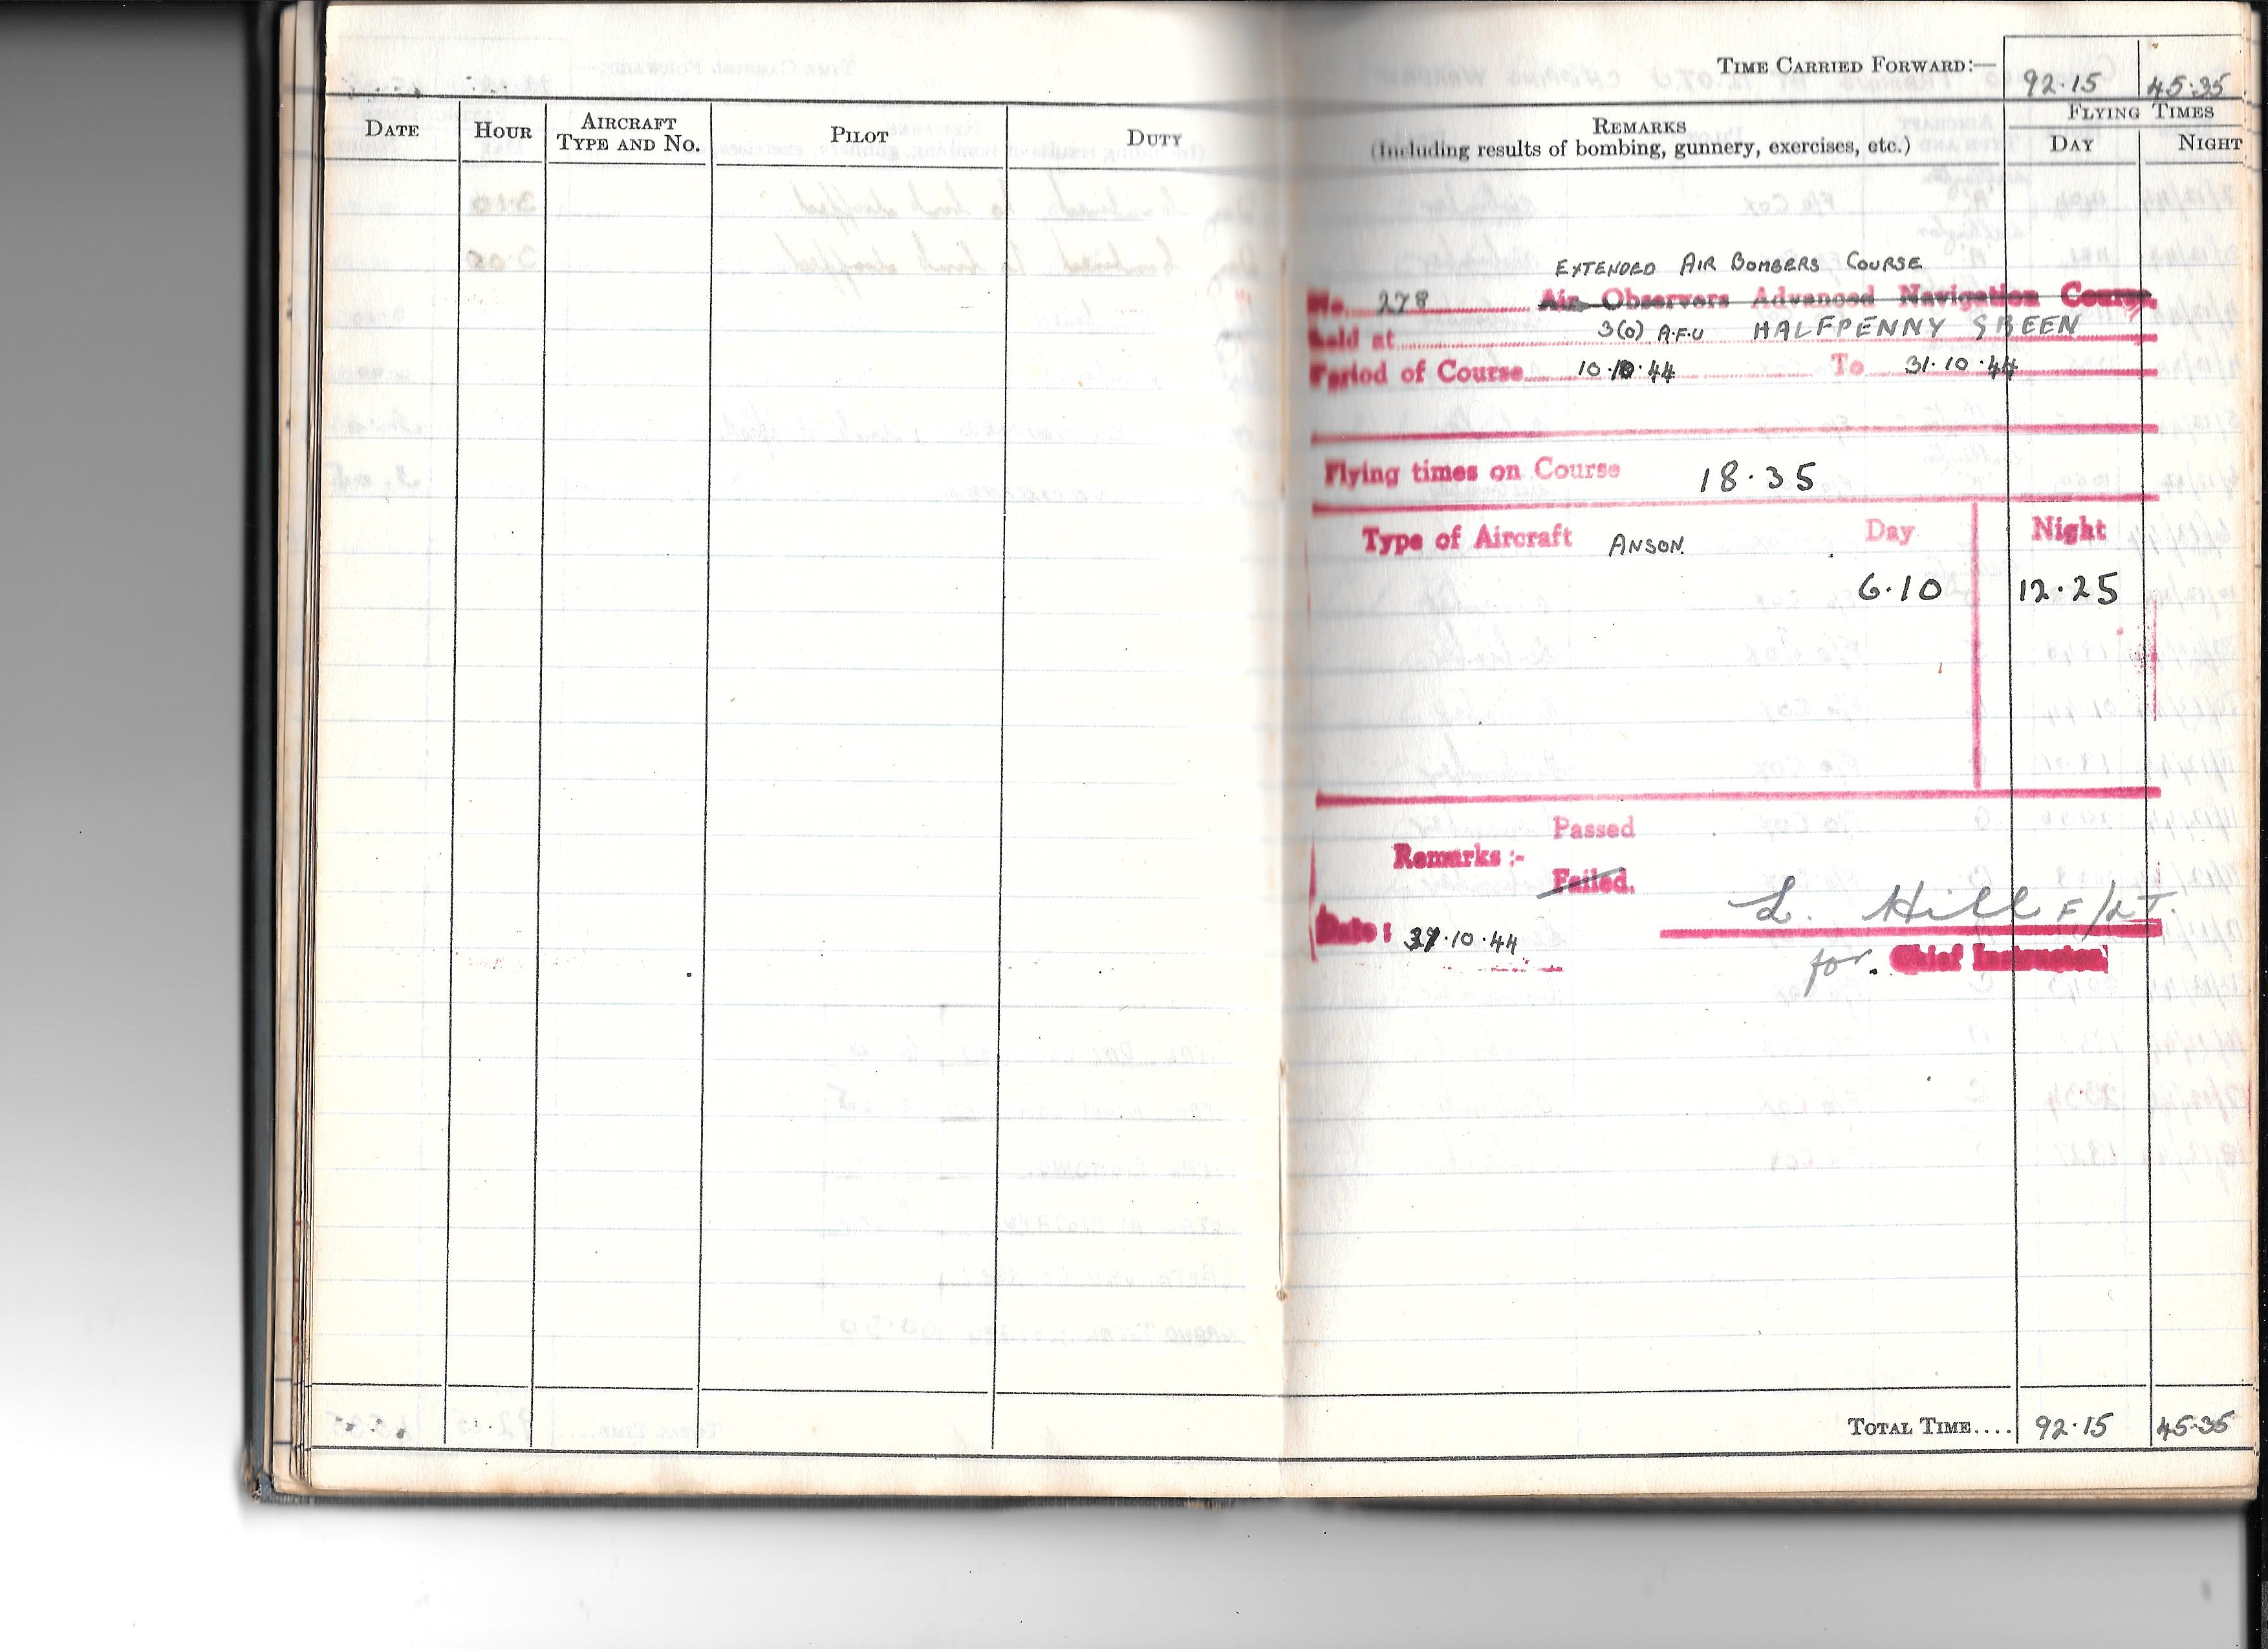 TIME CARRIED FORWARD:— 92·15 45·35
DATE HOUR AIRCRAFT TYPE AND No. PILOT DUTY
REMARKS
(Including results of bombing, gunnery, exercises, etc.)
FLYING TIMES
DAY NIGHT
EXTENDED AIR BOMBERS COURSE
No. 278 Air Observers Advanced Navigation Course,
held at 3(O) A.F.U HALFPENNY GREEN
Period of Course 10·10·44 To 31·10·44
Flying times on Course 18·35
Type of Aircraft ANSON. Day Night
6·10 12·25
Passed
Remarks :-
Failed.
L. Hill F/LT.
Date: ·10·44
for. Chief Instructor.
TOTAL TIME.... 92·15 45·35